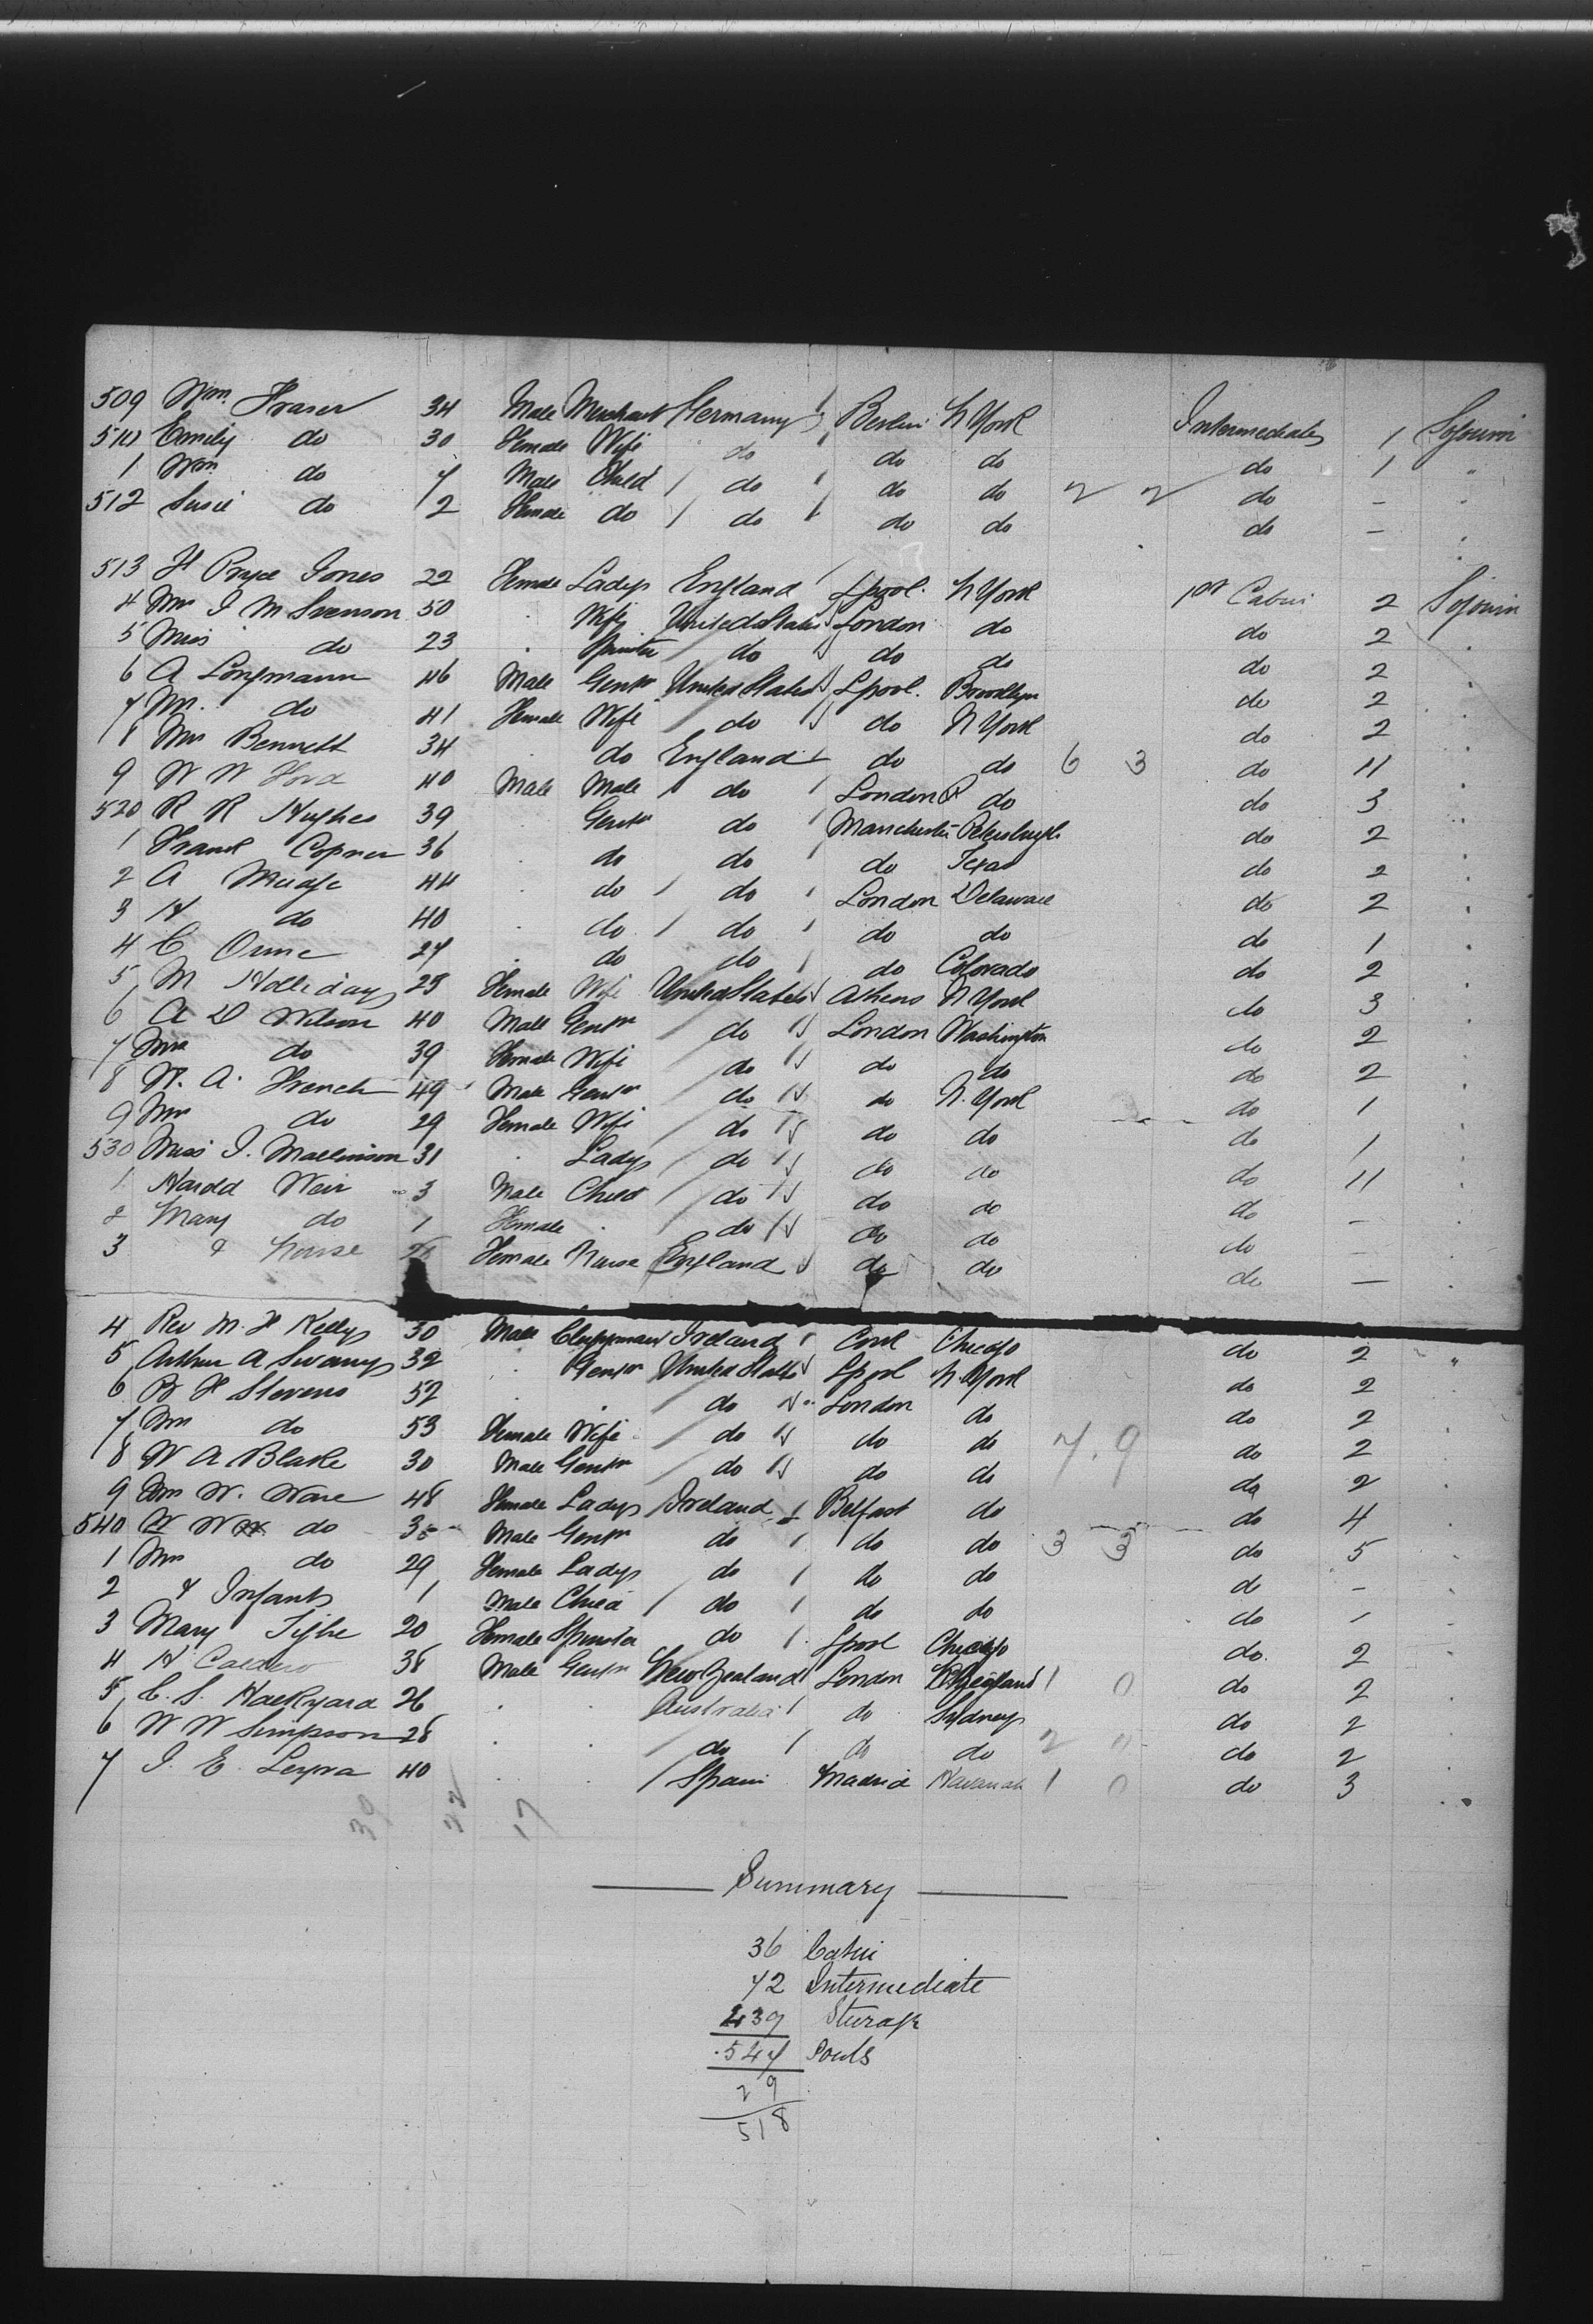 509 Wm. Fraser 34 Male Merchant Germany Berlin N York Intermediate 1 Sojourn
510 Emily do 30 Female Wife do do do do 1 "
1 Wm do 7 Male Child do do do 2 2 do -
512 Susie do 2 Female do do do do do -
513 H Pryce Jones 22 Female Lady England Lpool. N York 1st Cabin 2 Sojourn
4 Mrs J M Svenson 50 Wife United States London do do 2
5 Miss do 23 Spinster do do do do 2
6 A Longmann 46 Male Gentn United States Lpool. Brooklyn do 2
7 Mrs. do 41 Female Wife do do N York do 2
8 Mrs Bennett 34 do England do do 6 3 do 11
9 W W Ford 40 Male Male do London do do 3
520 R R Hughes 39 Gentn do Manchester do 2
1 Frank 36 do do do Texas do 2
2 A 44 do do London Delaware do 2
3 H do 40 do do do do do 1
4 C Orme 27 do do do Colorado do 2
5 M Holliday 23 Female Wife United States Athens N York do 3
6 A D Wilson 40 Male Gentn do London Washington do 2
7 Mrs do 39 Female Wife do do do do 2
8 W. A. French 49 Male Gentn do do N. York do 1
9 Mrs do 29 Female Wife do do do do 1
530 Miss J. Mallinson 31 Lady do do do do 11
1 Harold Weir 3 Male Child do do do do -
2 Mary do 1 Female do do do do -
3 & Nurse Female Nurse England do do do -
4 Rev M. H Kelly 30 Male Clergyman Ireland Cork Chicago do 2 "
5 Arthur A Swany 32 Gentn United States Lpool N. York do 2
6 B F Stevens 52 do London do do 2
7 Mrs do 53 Female Wife do do do 7. 9 do 2
8 W A Blake 30 Male Gentn do do do do 2
9 Mrs W. Ware 48 Female Lady Ireland Belfast do do 4
540 W W do Male Gentn do do do 3 3 do 5
1 Mrs do 29 Female Lady do do do do -
2 & Infant 1 Male Child do do do do -
3 Mary Tighe 20 Female Spinster do Lpool Chicago do. 2
4 H Caldero 38 Male Gentn New Zealand London 1 0 do 2
5 C. S. Hackyard 26 Australia do Sydney do 2
6 W W Simpson 28 do do do 2 0 do 2
7 J. E. Leyva 40 Spain Madrid Havanah 1 0 do 3
39 22 17
Summary
36 Cabin
72 Intermediate
439 Steerage
547 Souls
29
518